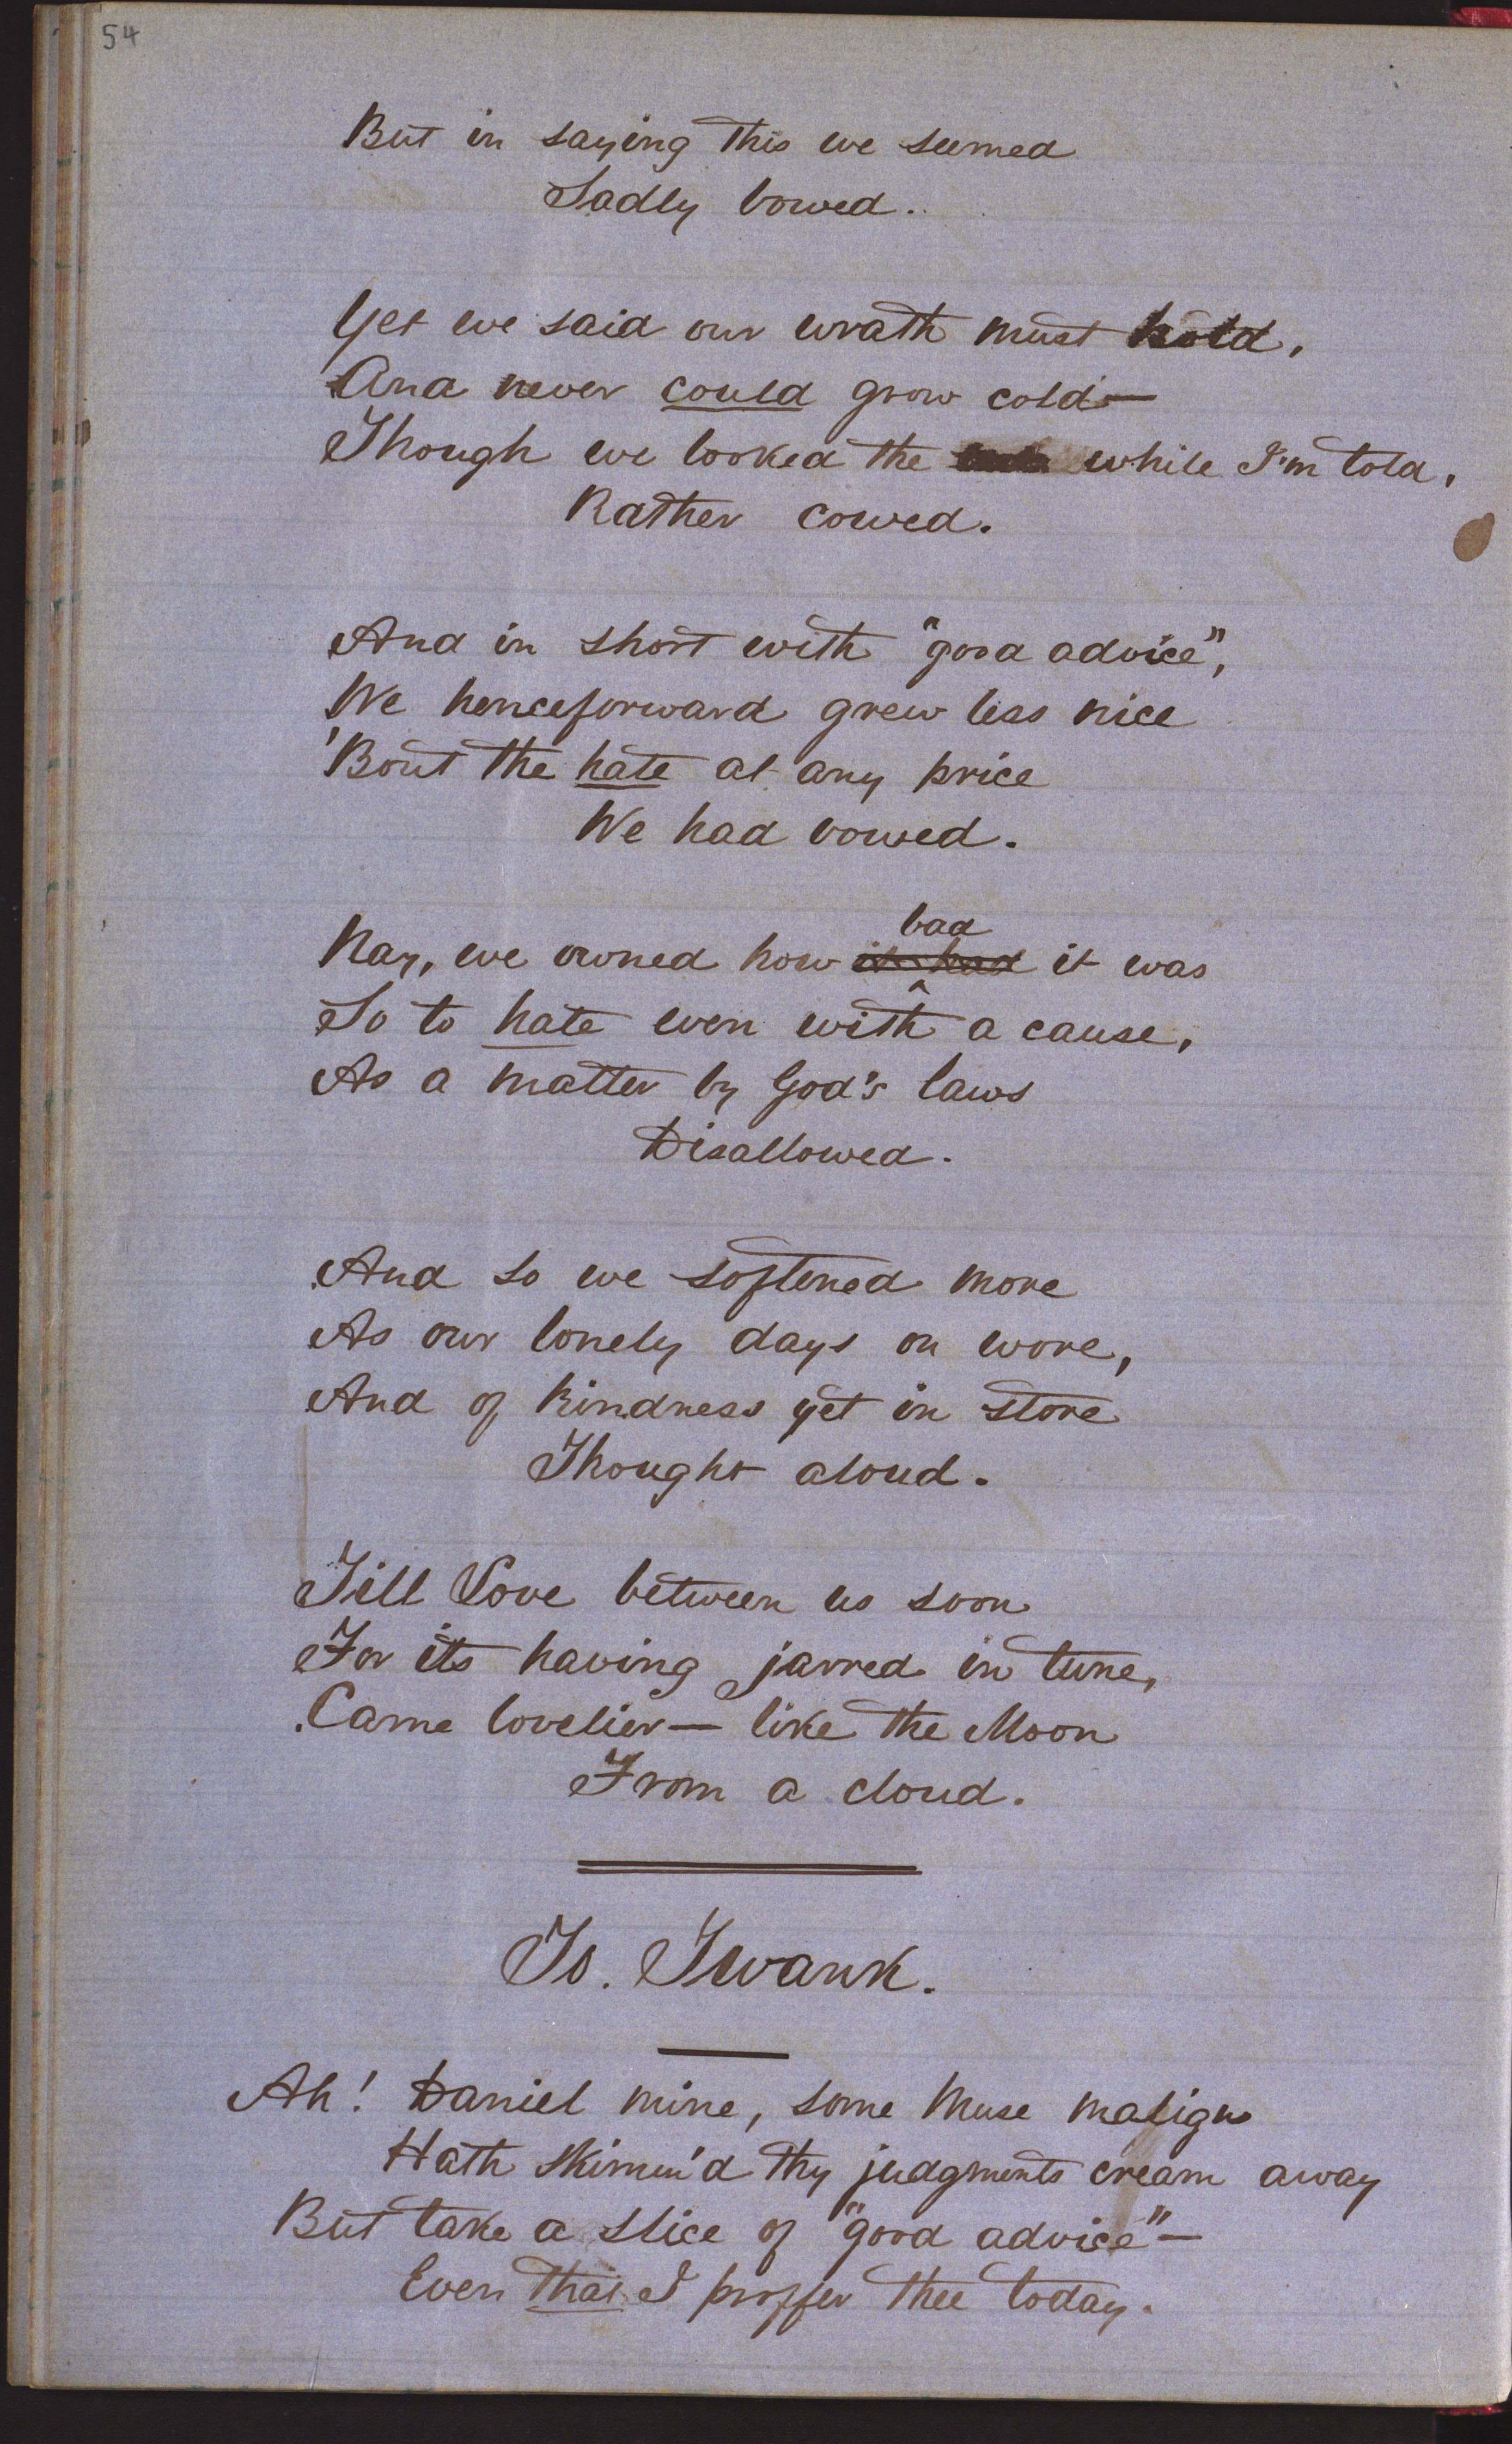 54
But in saying this we seemed
Sadly bowed.
Yet we said our wrath must hold,
And never could grow cold—
Though we looked the while I'm told,
Rather cowed.
And in short with "good advice",
We henceforward grew less nice
'Bout the hate at any price
We had vowed.
bad
Nay, we owned how it had it was
So to hate even with a cause,
As a matter by God's laws
Disallowed.
And so we softened more
As our lonely days on wore,
And of kindness yet in store
Thought aloud.
Till Love between us soon
For its having jarred in tune,
Came lovelier— like the Moon
From a cloud.
To. Twank.
Ah! Daniel mine, some Muse malign
Hath skimm'd thy judgments cream away
But take a slice of "good advice"—
Even that I proffer thee today.